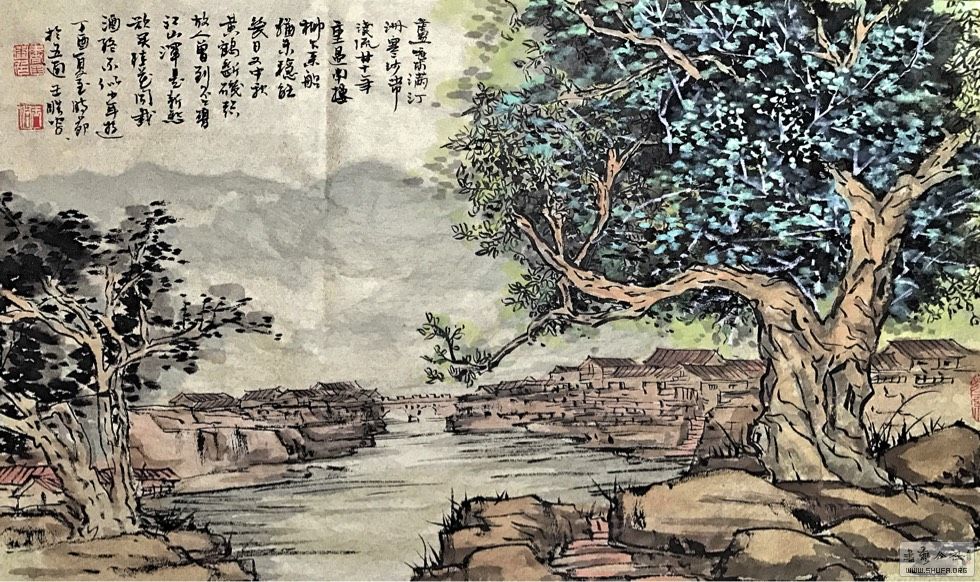 蘆葉滿汀
洲寒沙帶
淺流廿年
重過南樓
柳下系船
猶未穩能
幾日又中秋
黃鶴斷磯頭
故人曾到否舊
江山渾是新愁
欲買桂花同載
酒終不似少年遊
丁酉夏至時節
WWW.SHUFA.ORG